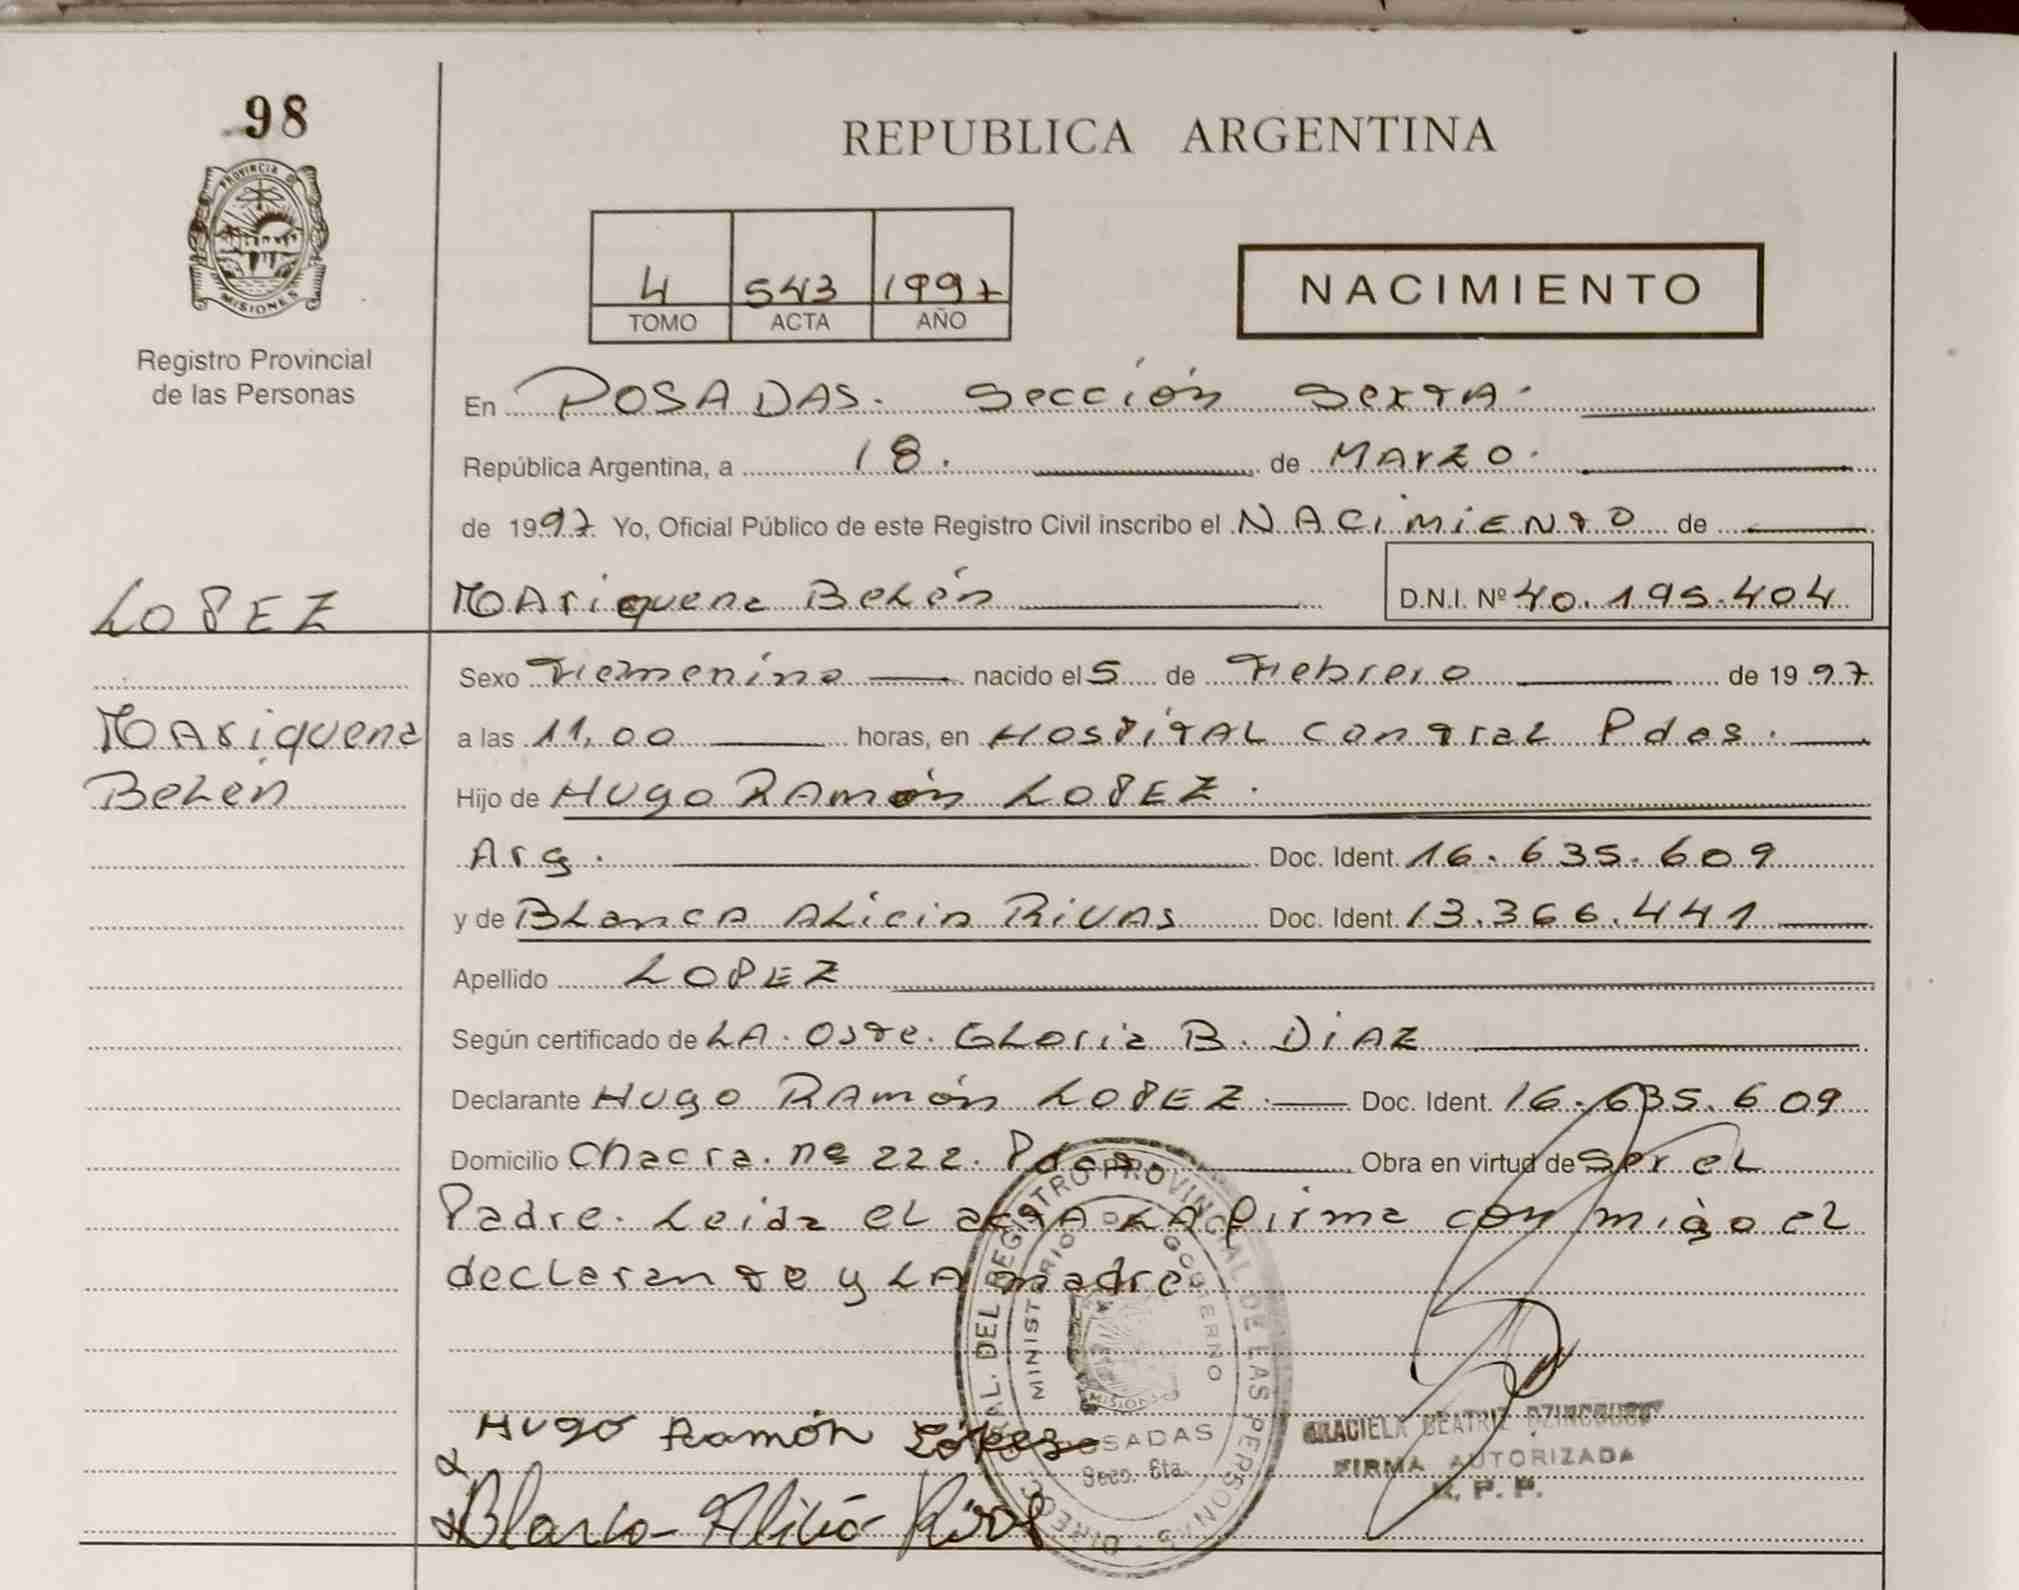 98
PROVINCIA D
MISIONES
Registro Provincial
de las Personas
REPUBLICA ARGENTINA
4 543 1997
TOMO ACTA AÑO
NACIMIENTO
En POSADAS. Sección Sexta.
República Argentina, a 18. de Marzo.
de 1997. Yo, Oficial Público de este Registro Civil inscribo el NACIMIENTO de
LOPEZ
Mariquena Belén D.N.I. Nº 40.195.404
Sexo Femenino nacido el 5 de Febrero de 1997
Mariquena
a las 11,00 horas, en HOSPITAL Central Pdas.
Belén
Hijo de Hugo Ramón LOPEZ.
Arg. Doc. Ident. 16.635.609
y de Blanca Alicia Rivas Doc. Ident. 13.366.441
Apellido LOPEZ
Según certificado de LA. Oste. Gloria B. DIAZ
Declarante Hugo Ramón LOPEZ. Doc. Ident. 16.635.609
Domicilio Chacra. nº 222. Pdas. Obra en virtud de ser el
Padre. Leida el acta LA firma con migo el
declarante y LA madre
DIREC. GRAL. DEL REGISTRO PROVINCIAL DE LAS PERSONAS
MINISTERIO DE GOBIERNO
MISIONES
POSADAS
Secc. 6ta.
Hugo Ramón López
Blanca Alicia Rivas
GRACIELA BEATRIZ
FIRMA AUTORIZADA
R. P. P.